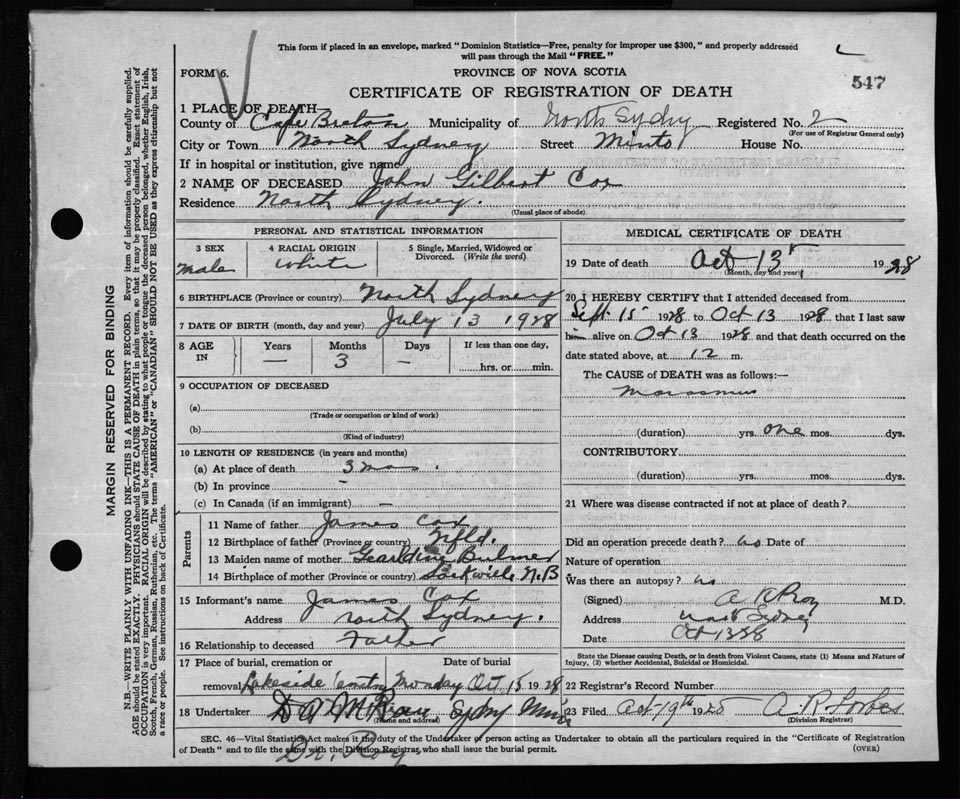 This form if placed in an envelope, marked "Dominion Statistics—Free, penalty for improper use $300," and properly addressed
will pass through the Mail "FREE."
FORM 6.
PROVINCE OF NOVA SCOTIA
547
CERTIFICATE OF REGISTRATION OF DEATH
1 PLACE OF DEATH—
County of Cape Breton Municipality of North Sydney Registered No. 2
(For use of Registrar General only)
City or Town North Sydney Street Minto House No.
If in hospital or institution, give name
2 NAME OF DECEASED John Gilbert Cox
Residence North Sydney.
(Usual place of abode)
MARGIN RESERVED FOR BINDING
N.B.—WRITE PLAINLY WITH UNFADING INK—THIS IS A PERMANENT RECORD. Every item of information should be carefully supplied.
AGE should be stated EXACTLY. PHYSICIANS should STATE CAUSE OF DEATH in plain terms, so that it may be properly classified. Exact statement of
OCCUPATION is very important. RACIAL ORIGIN will be described by stating to what people or tongue the deceased person belonged, whether English, Irish,
Scotch, French, German, Russian, Ruthenian, etc. The terms "AMERICAN" or "CANADIAN" SHOULD NOT BE USED as they express citizenship but not
a race or people. See instructions on back of Certificate.
PERSONAL AND STATISTICAL INFORMATION
3 SEX male
4 RACIAL ORIGIN White
5 Single, Married, Widowed or
Divorced. (Write the word)
6 BIRTHPLACE (Province or country) North Sydney
7 DATE OF BIRTH (month, day and year) July 13 1928
8 AGE IN
Years Months Days If less than one day,
— 3 — hrs. or min.
9 OCCUPATION OF DECEASED
(a)
(Trade or occupation or kind of work)
(b)
(Kind of industry)
10 LENGTH OF RESIDENCE (in years and months)
(a) At place of death 3 mos.
(b) In province —
(c) In Canada (if an immigrant) —
Parents
11 Name of father James Cox
12 Birthplace of father (Province or country) Nfld.
13 Maiden name of mother Gearldine Bulmer
14 Birthplace of mother (Province or country) Sackville N.B
15 Informant's name James Cox
Address North Sydney.
16 Relationship to deceased Father
17 Place of burial, cremation or Date of burial
removal Lakeside Monday Oct 15 1928
18 Undertaker Sydney Mines
(Name and address)
MEDICAL CERTIFICATE OF DEATH
19 Date of death Oct 13 1928
(Month, day and year)
20 I HEREBY CERTIFY that I attended deceased from
Sept 15 1928 to Oct 13 1928, that I last saw
him alive on Oct 13 1928 and that death occurred on the
date stated above, at 12 m.
The CAUSE of DEATH was as follows:—
Marasmus
(duration) yrs. one mos. dys.
CONTRIBUTORY
(duration) yrs. mos. dys.
21 Where was disease contracted if not at place of death?
Did an operation precede death? no Date of
Nature of operation
Was there an autopsy? no
(Signed) A R Roy M.D.
Address North Sydney
Date Oct 13 28
State the Disease causing Death, or in death from Violent Causes, state (1) Means and Nature of
Injury, (2) whether Accidental, Suicidal or Homicidal.
22 Registrar's Record Number
23 Filed Oct 19th 1928 A. R. Forbes
(Division Registrar)
SEC. 46—Vital Statistics Act makes it the duty of the Undertaker or person acting as Undertaker to obtain all the particulars required in the "Certificate of Registration
of Death" and to file the same with the Division Registrar, who shall issue the burial permit.
(OVER)
Dr. Roy